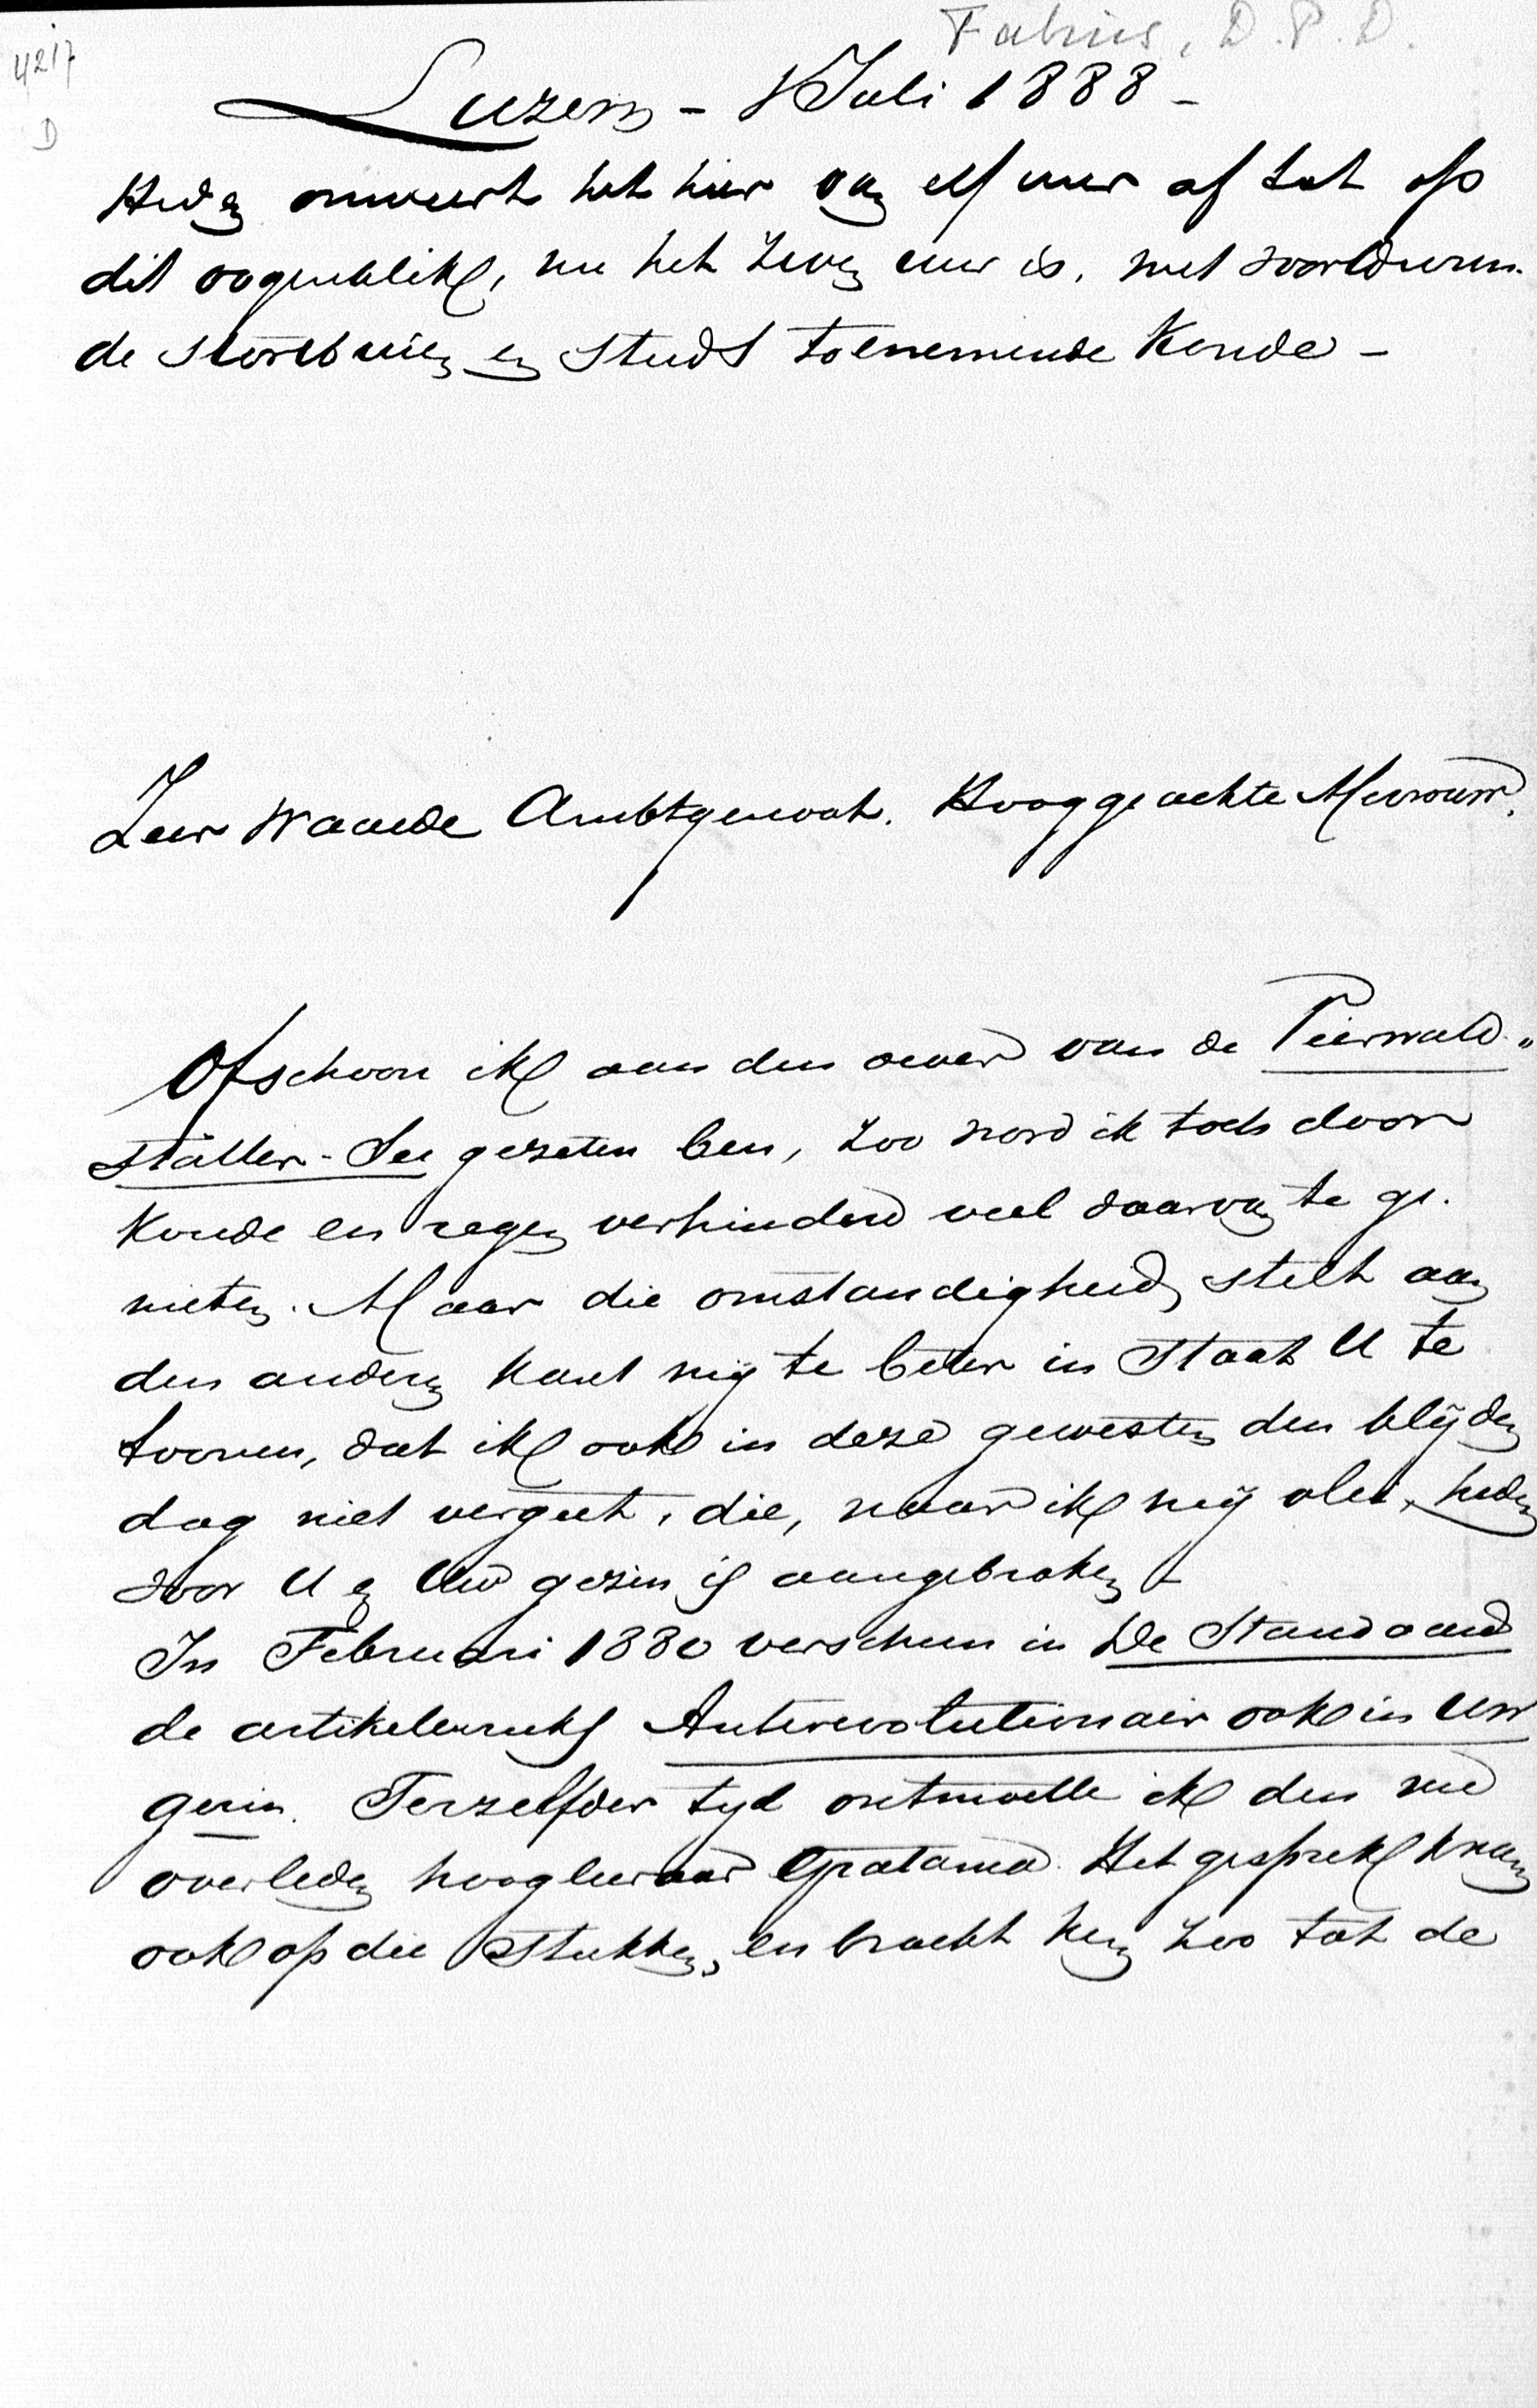 Fabius, D.P.D.
4217
D
Luzern - 1 Juli 1888 -
Heden onweert het hier van elf uur af tot op
dit oogenblik, nu het zeven uur is, met voortduren-
de stortbuien en steeds toenemende koude -
Zeer Waarde Ambtgenoot. Hooggeachte Mevrouw,
Ofschoon ik aan den oever van de Vierwald-
stätter-See gezeten ben, zoo word ik toch door
koude en regen verhinderd veel daarvan te ge-
nieten. Maar die omstandigheid stelt aan
den anderen kant mij te beter in staat U te
toonen, dat ik ook in deze gewesten den blijden
dag niet vergeet, die, naar ik mij vlei, heden
voor U en Uw gezin is aangebroken -
In Februari 1880 verscheen in De Standaard
de artikelenreeks Antirevolutionair ook in Uw
gezin. Terzelfder tyd ontmoette ik den nu
overleden hoogleeraar Gratama. Het gesprek kwam
ook op die stukken, en bracht hem zoo tot de